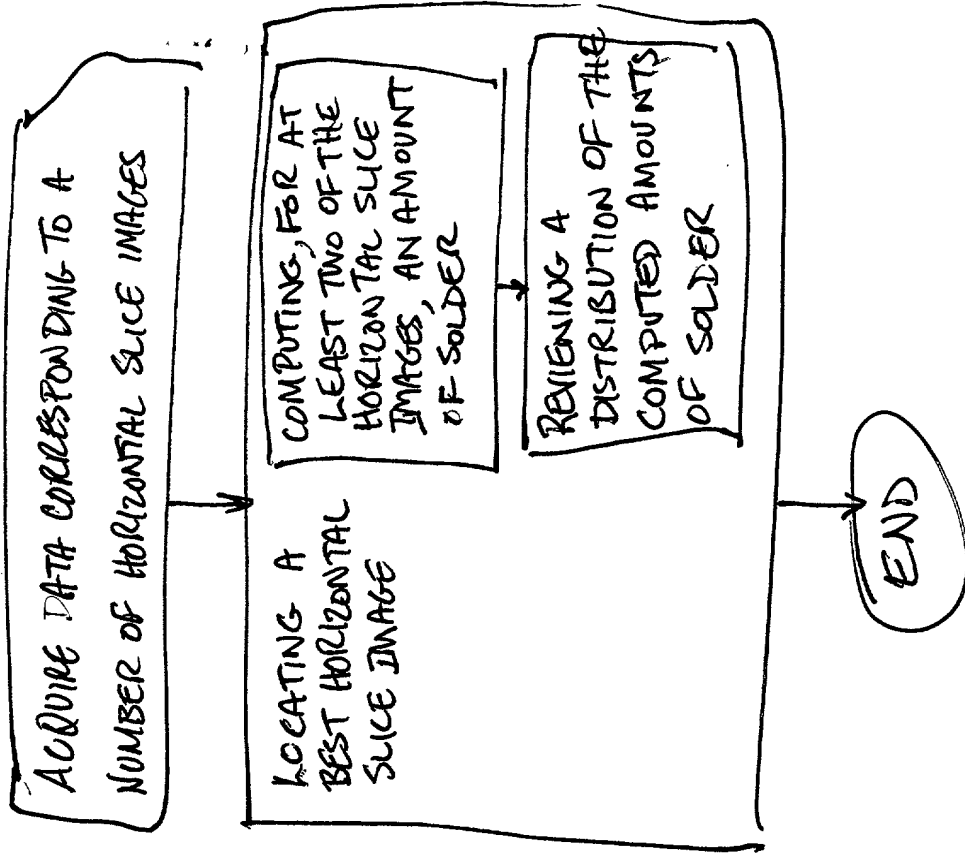 ACQUIRE DATA CORRESPONDING TO A
NUMBER OF HORIZONTAL SLICE IMAGES
LOCATING A
BEST HORIZONTAL
SLICE IMAGE
COMPUTING, FOR AT
LEAST TWO OF THE
HORIZONTAL SLICE
IMAGES, AN AMOUNT
OF SOLDER
REVIENING A
DISTRIBUTION OF THE
COMPUTED AMOUNTS
OF SOLDER
END